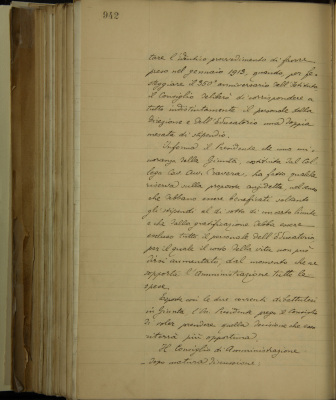 942
tare l'identico provvedimento di favore
preso nel gennaio 1913, quando, per fe=
steggiare il 350° anniversario dell'Istituto
il Consiglio deliberò di corrispondere a
tutto indistintamente il personale della
Direzione e dell'Educatorio una doppia
mesata di stipendio.
Informa il Presidente che una mi=
noranza della Giunta, costituita dal Col=
lega Cav. Avv. ha fatto qualche
riserva sulla proposta anzidetta, nel senso
che debbano essere beneficati soltanto
gli stipendi al di sotto di un certo limite
e che dalla gratificazione debba essere
escluso tutto il personale dell'Educatorio
per il quale il costo della vita non può
dirsi aumentato, dal momento che ne
sopporta l'Amministrazione tutte le
spese.
Esposte così le due correnti dibattutesi
in Giunta, il Presidente prega il Consiglio
di voler prendere quella decisione che cre=
derà più opportuna.
Il Consiglio di Amministrazione
dopo matura discussione: